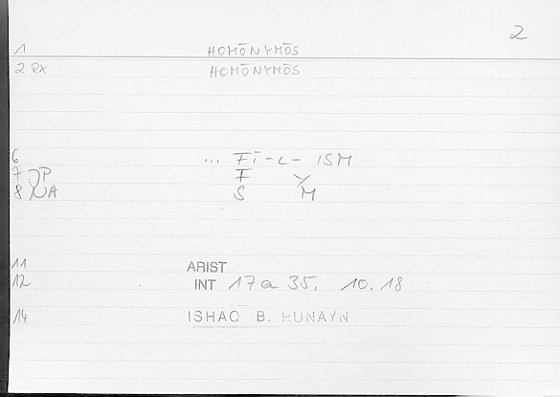 2
1 HOMŌNYMŌS
2 RX HOMŌNYMŌS
6 ... FĪ-L- ISM
7 P F Y
8 A S M
11 ARIST
12 INT 17a 35. 10.18
14 ISHAQ B. HUNAYN